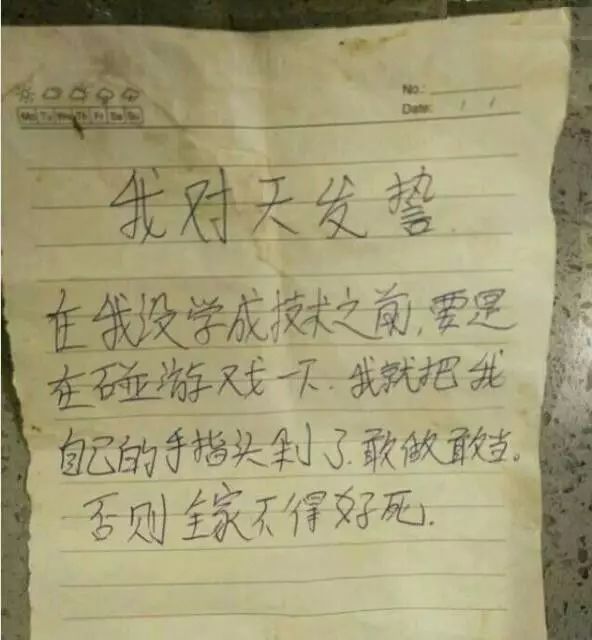 No.:
Date:
Mo Tu We Th Fr Sa Su
我对天发誓
在我没学成技术之前,要是
在碰游戏一下.我就把我
自己的手指头剁了.敢做敢当。
否则全家不得好死.